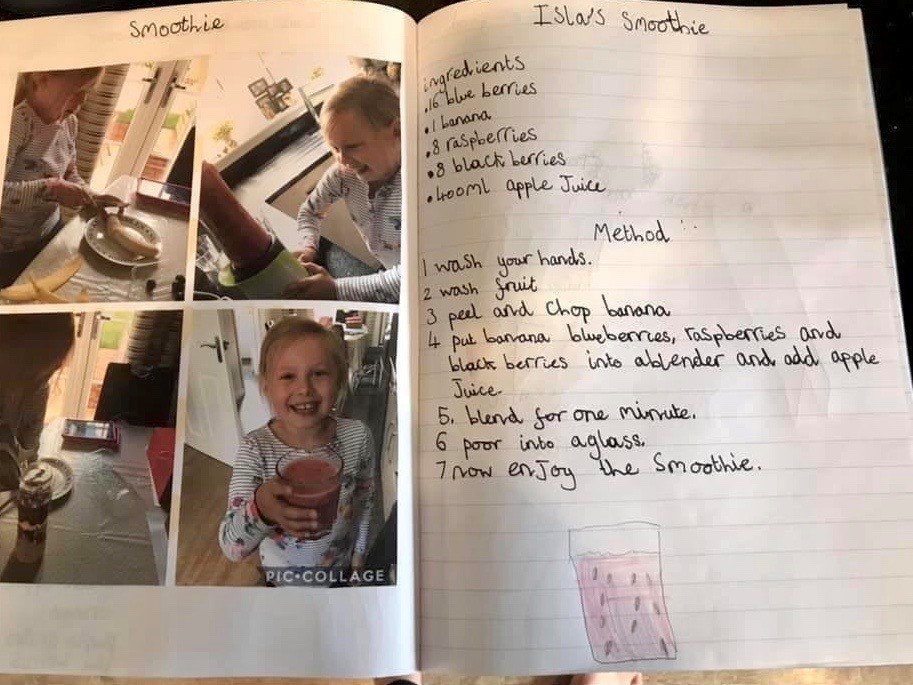 Smoothie
PIC•COLLAGE
Isla's Smoothie
ingredients
.16 blue berries
.1 banana
.8 raspberries
.8 black berries
.400ml apple Juice
Method :
1 wash your hands.
2 wash fruit
3 peel and chop banana
4 put banana blueberries, raspberries and
black berries into ablender and add apple
Juice.
5. blend for one minute.
6 poor into aglass.
7 now enJoy the Smoothie.